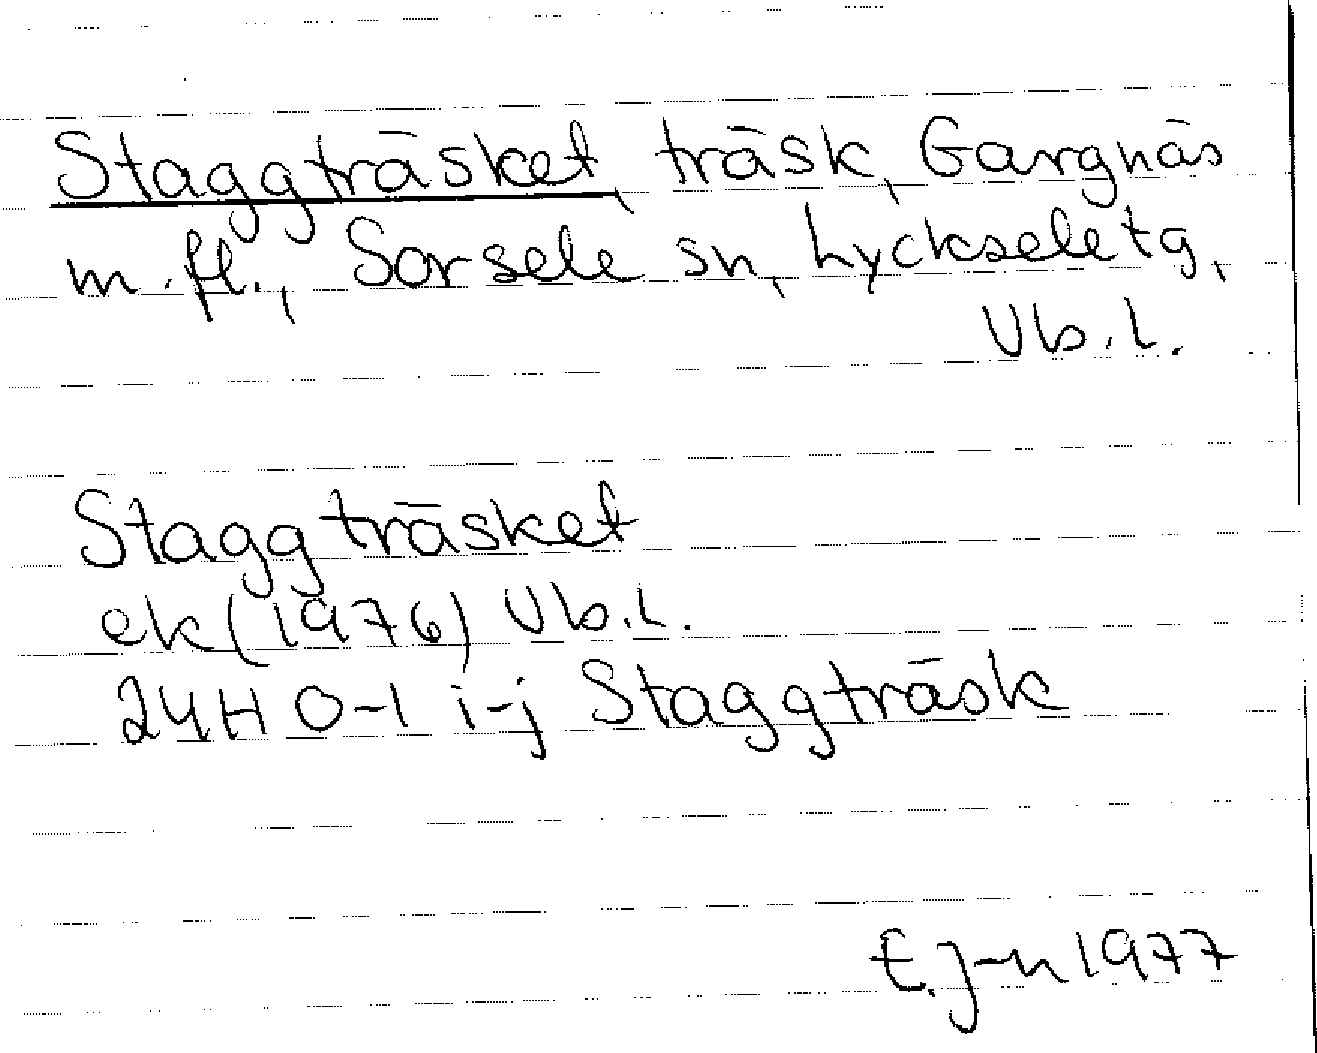 Staggträsket, träsk, Gargnäs
m.fl., Sorsele sn, Lycksele tg,
Vb.l.
Staggträsket
ek (1976) Vb.l.
24H 0-1 i-j Staggträsk
E.J-n 1977